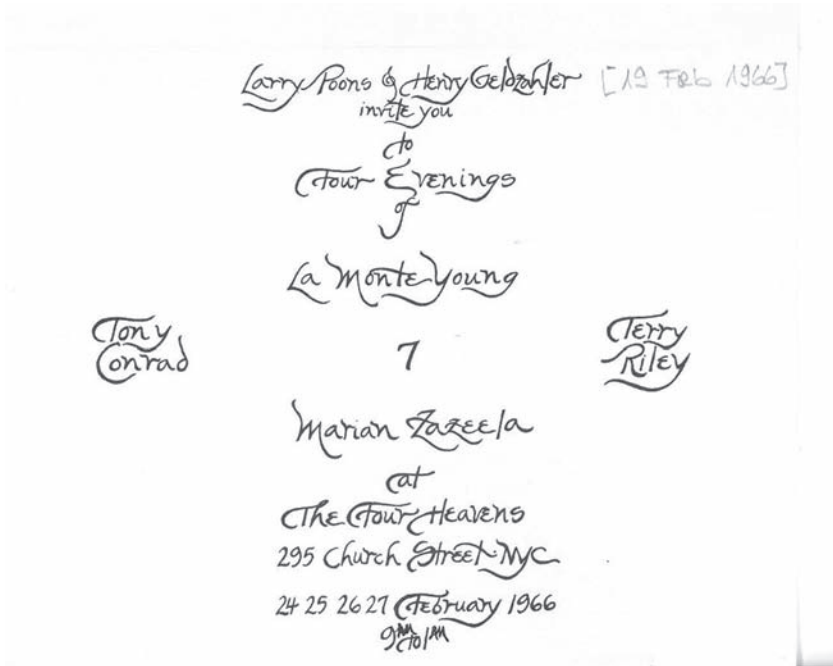 Larry Poons & Henry Geldzahler [19 Feb 1966]
invite you
to
Four Evenings
of
La Monte Young
Tony
Conrad
7
Terry
Riley
Marian Zazeela
at
The Four Heavens
295 Church Street NYC
24 25 26 27 February 1966
9 AM to 1 AM